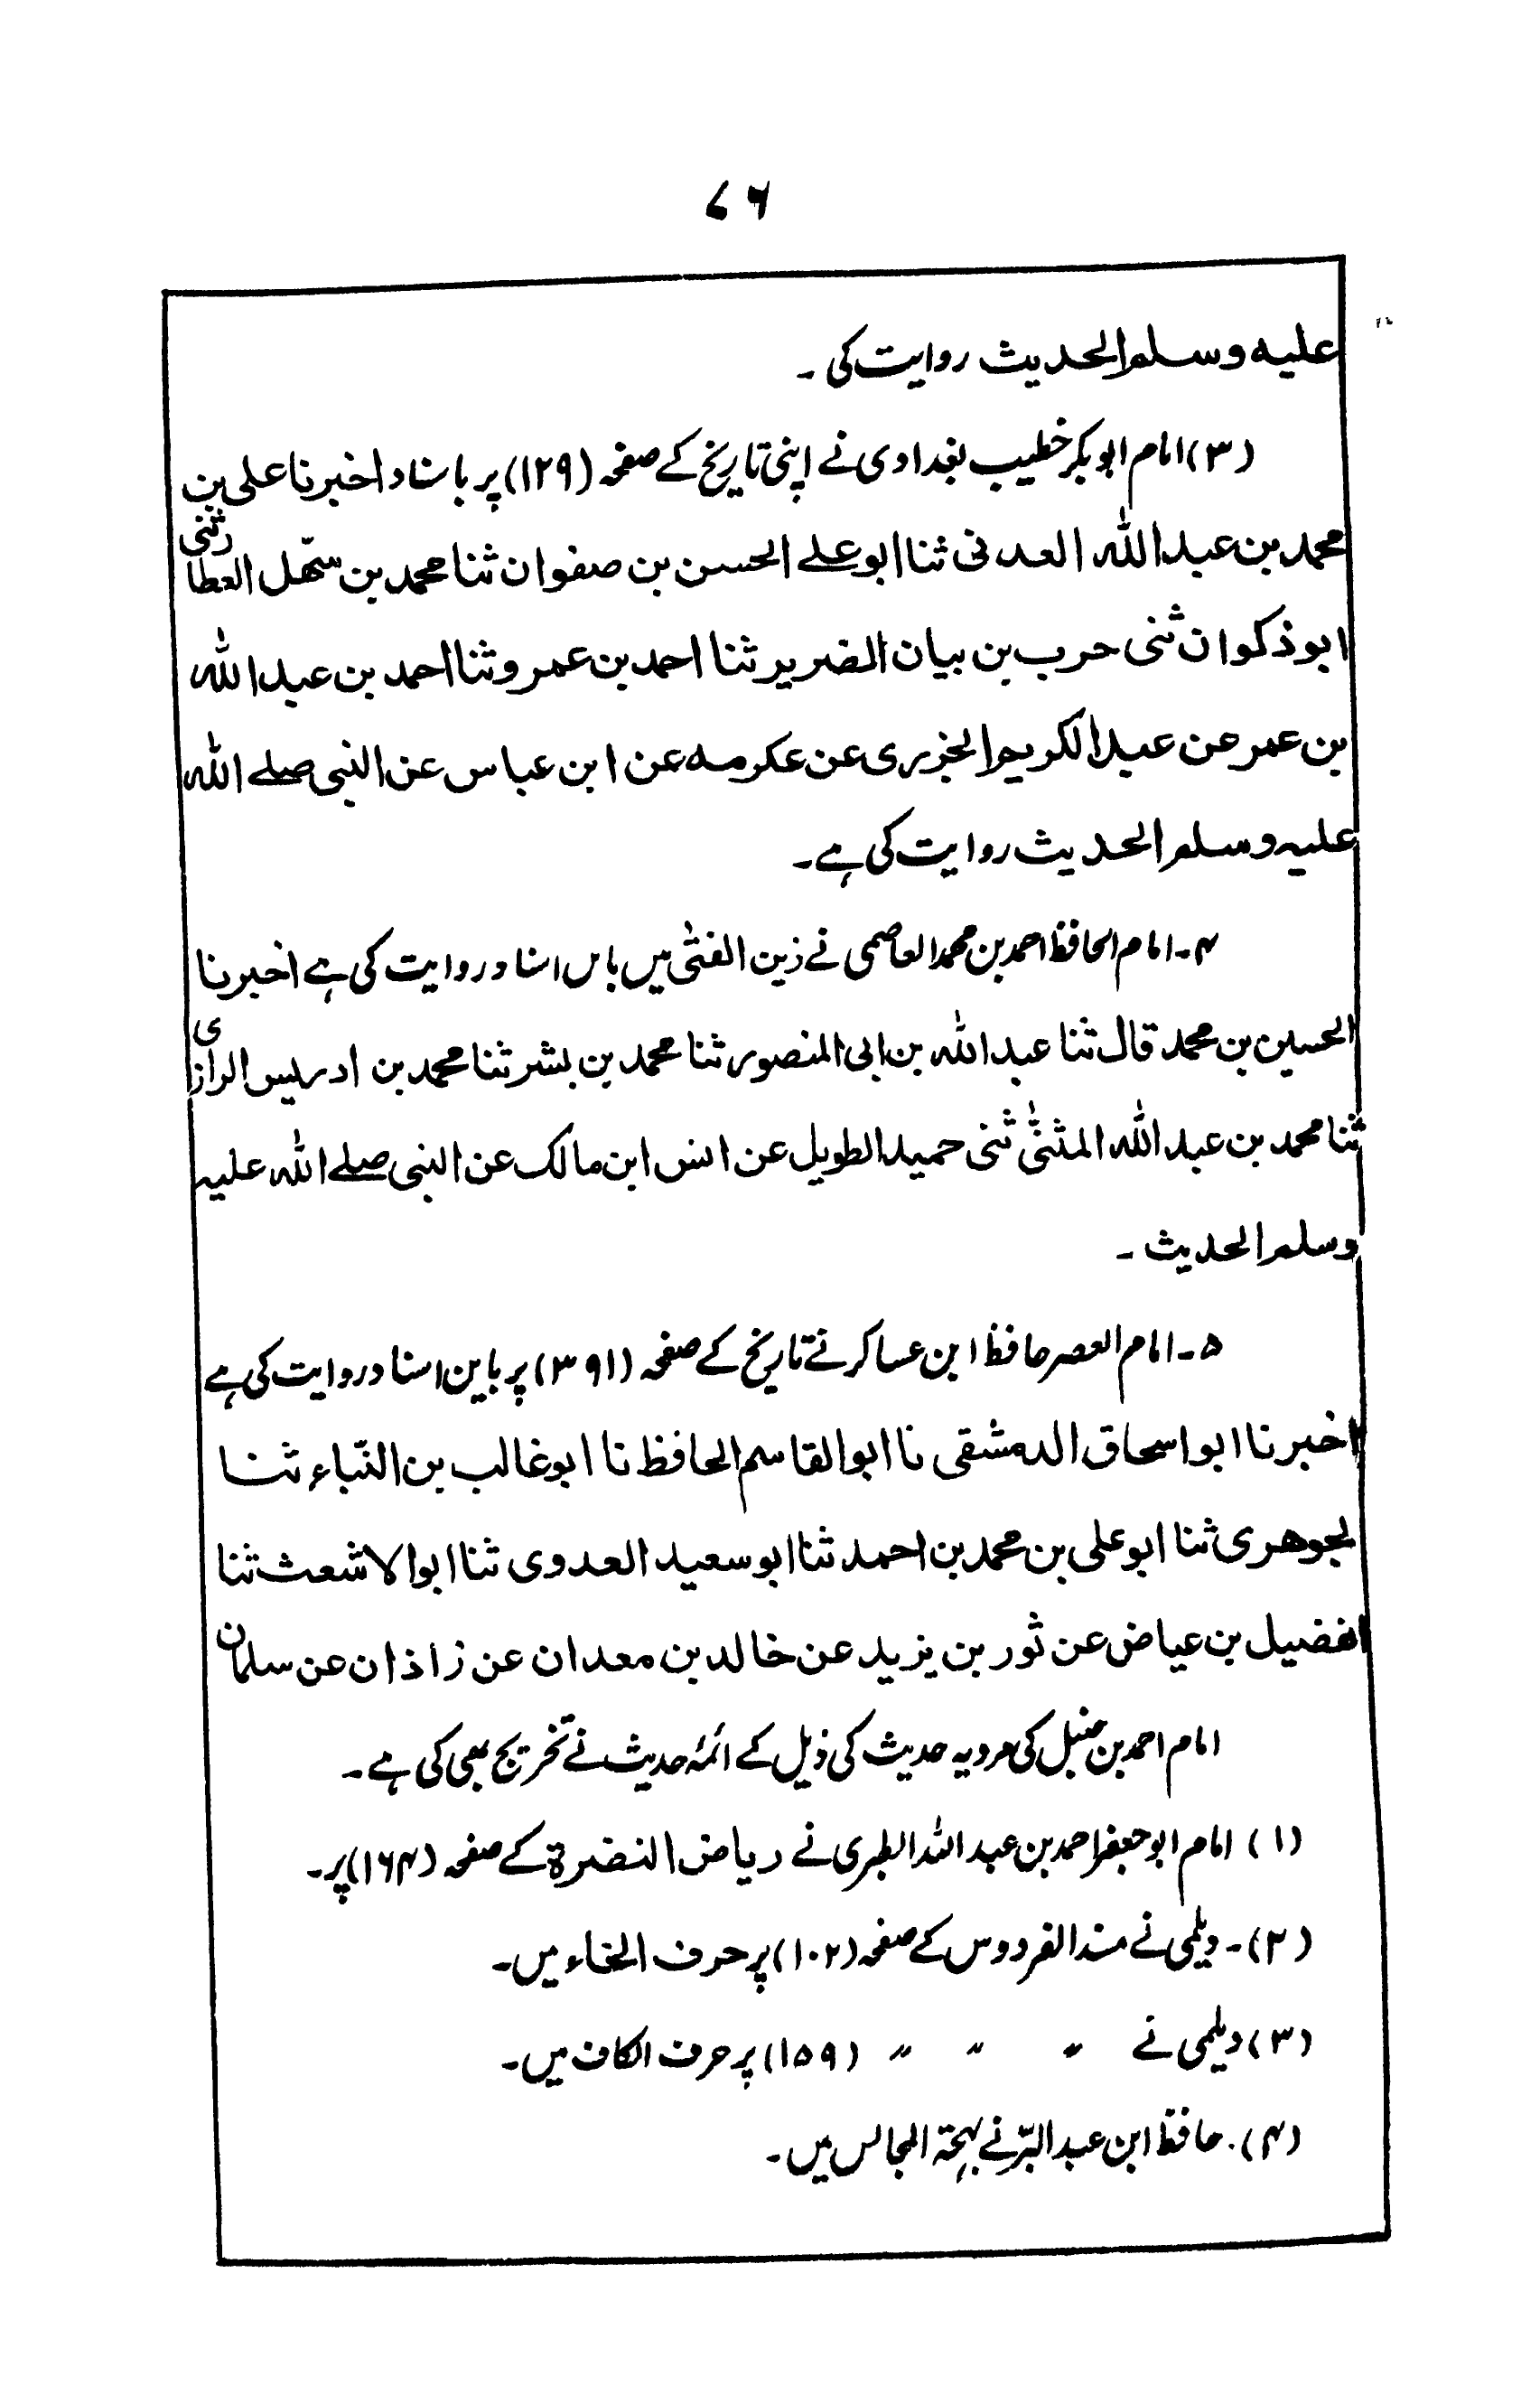 ۷۶
علیہ وسلم الحدیث روایت کی ۔
(۳) امام ابوبکر خطیب بغدادی نے اپنی تاریخ کے صفحہ (۱۲۹) پر باسناد اخبرنا علی بن
محمد بن عبد اللہ العدنی ثنا ابو علے الحسن بن صفوان ثنا محمد بن سہّل العطار ثنی
ابوذکوان ثنی حرب بن بیان الضریر ثنا احمد بن عمر وثنا احمد بن عبد اللہ
بن عمر عن عبد الکریم الجزری عن عکرمہ عن ابن عباس عن النبی صلے اللہ
علیہ وسلم الحدیث روایت کی ہے۔
۴۔ امام الحافظ احمد بن محمد العاصمی نے زین الفتٰی میں بایں اسناد روایت کی ہے اخبرنا
الحسین بن محمد قال ثنا عبد اللہ بن ابی المنصور ثنا محمد بن بشر ثنا محمد بن ادریس الرازی
ثنا محمد بن عبد اللہ المثنّٰی ثنی حمید الطویل عن انس ابن مالک عن النبی صلے اللہ علیہ
وسلم الحدیث ۔
۵۔ امام العصر حافظ ابن عساکر نے تاریخ کے صفحہ (۳۹۱) پر باین اسناد روایت کی ہے
اخبرنا ابو اسحاق الدمشقی نا ابو القاسم الحافظ نا ابو غالب بن النّباء ثنا
لجوھری ثنا ابو علی بن محمد بن احمد ثنا ابو سعید العدوی ثنا ابو الاشعث ثنا
الفضیل بن عیاض عن ثور بن یزید عن خالد بن معدان عن زاذان عن سلمان
امام احمد بن حنبل کی مرویہ حدیث کی ذیل کے ائمہ حدیث نے تخریج بھی کی ہے ۔
(۱) امام ابو جعفر احمد بن عبد اللہ الطبری نے ریاض النضرۃ کے صفحہ (۱۶۴) پر۔
(۲)۔ دیلمی نے مسند الفردوس کے صفحہ (۱۰۲) پر حرف الخاء میں۔
(۳) دیلمی نے " " " (۱۵۹) پر حرف الکاف میں۔
(۴)۔ حافظ ابن عبد البرّ نے بہجۃ المجالس میں ۔